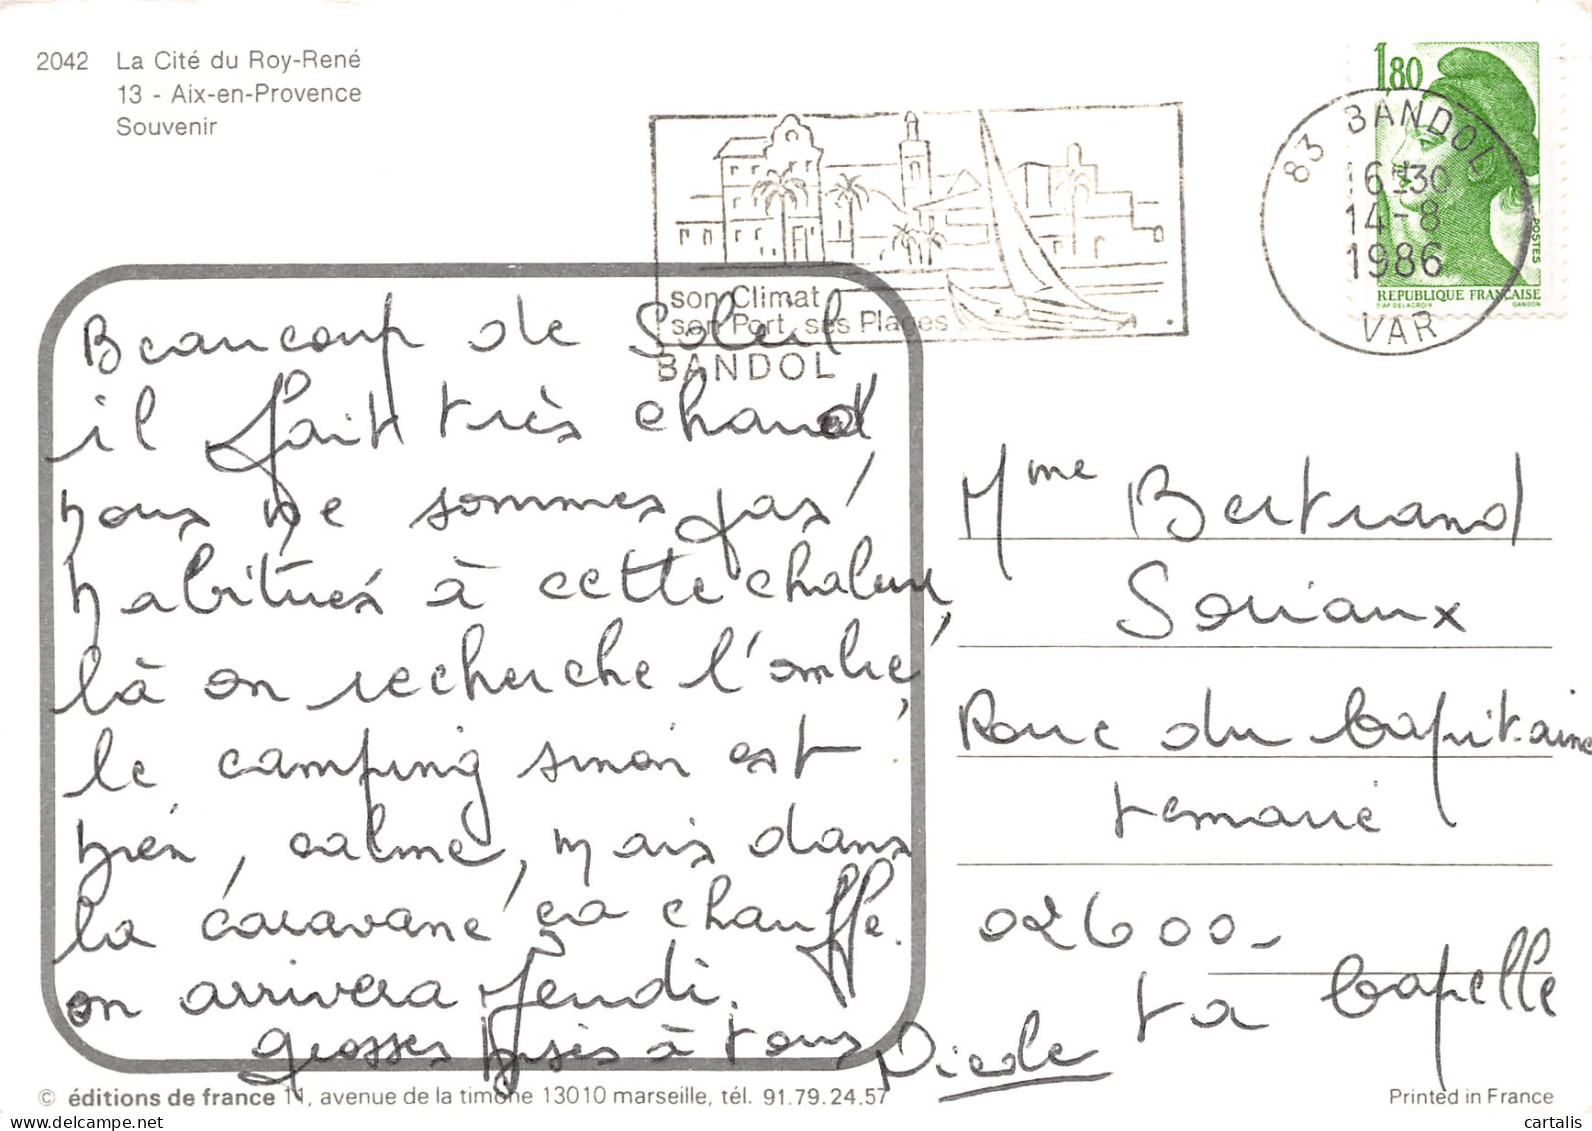 2042 La Cité du Roy-René
13 - Aix-en-Provence
Souvenir
1,80
POSTES
REPUBLIQUE FRANÇAISE
D'AP DELACROIX GANDON
83 BANDOL
16H30
14-8
1986
VAR
son Climat
son Port ses Plages
BANDOL
Beaucoup de Soleil
il fait très chaud
nous ne sommes pas
habitués à cette chaleur,
là on recherche l'ombre,
le camping sinon est
bien, calme, mais dans
la caravane ça chauffe.
on arrivera Jeudi.
grosses bises à tous
Nicole
Mme Bertrand
Soriaux
Rue du Capitaine
02600 -
La Capelle
© éditions de france 11, avenue de la timone 13010 marseille, tél. 91.79.24.57
Printed in France
cartalis